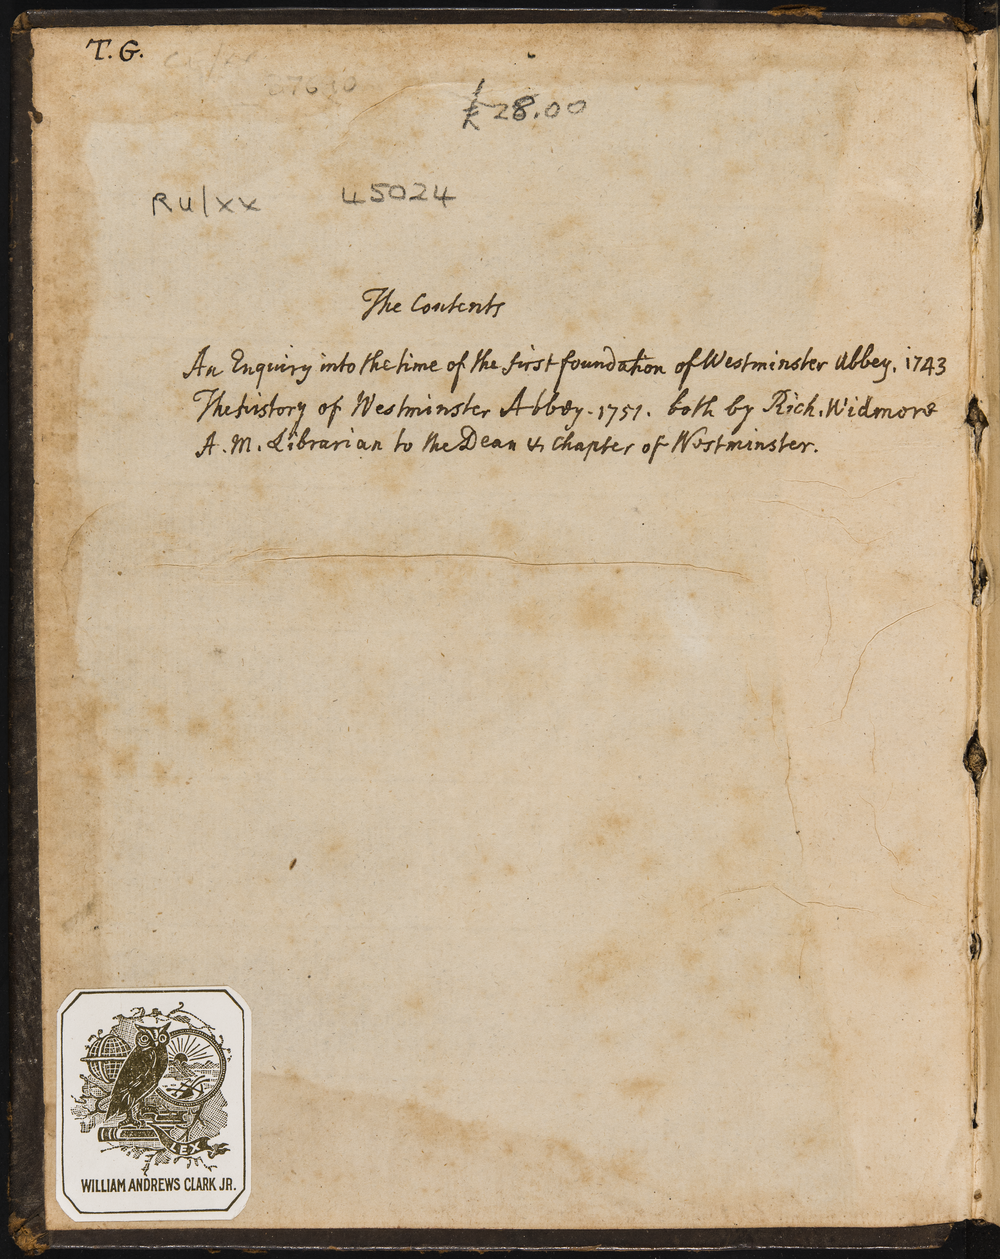 T. G.
£28.00
RU/xx 45024
The Contents
An Enquiry into the time of the first foundation of Westminster Abbey. 1743
The history of Westminster Abbey. 1751. both by Rich. Widmore
A. M. Librarian to the Dean & Chapter of Westminster.
LEX
WILLIAM ANDREWS CLARK JR.